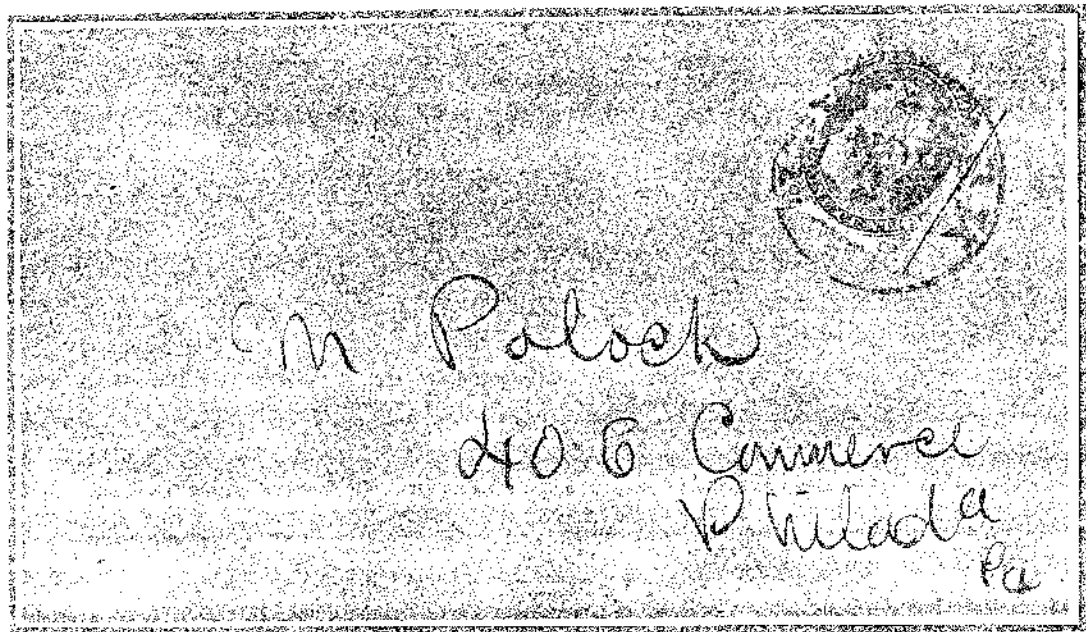 M Polock
406 Commerce
Philad a
Pa